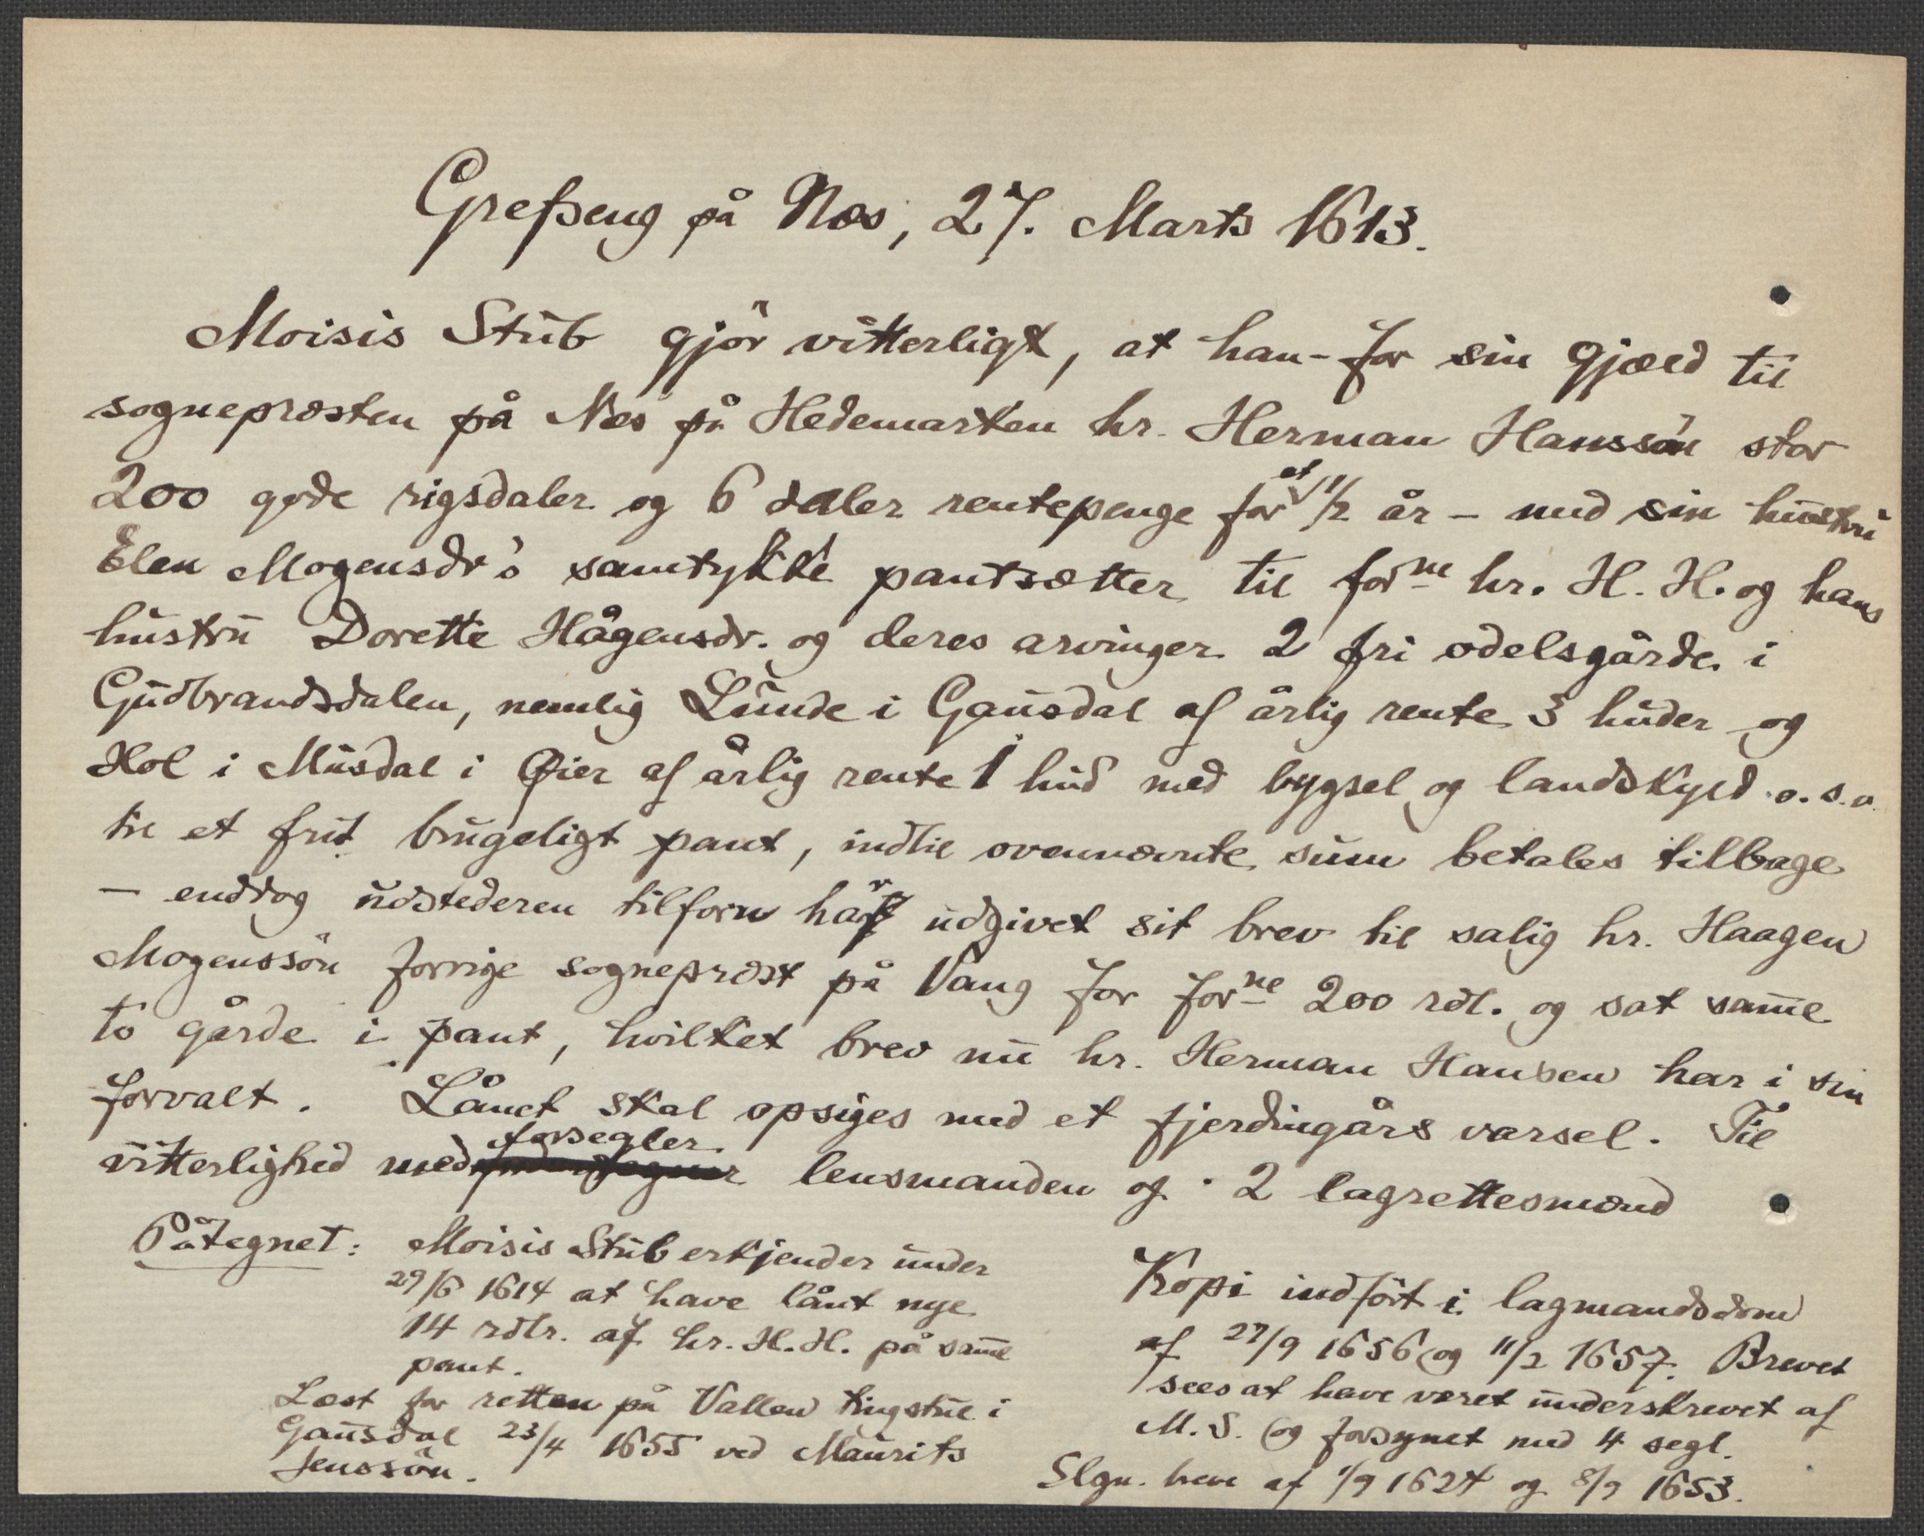 Grefseng på Næs, 27. Marts 1613.
Moisis Stub gjör vitterligt, at han – for sin gjæld til
sognepræsten på Næs på Hedemarken hr. Herman Hanssön stor
200 gode rigsdaler og 6 daler rentepenge for et 1/2 år – med sin hustru
Elen Mogensdr's samtykke pantsætter til forne hr. H. H. og hans
hustru Dorette Hågensdr. og deres arvinger 2 fri odelsgårde i
Gudbrandsdalen, nemlig Lunde i Gausdal af årlig rente 3 huder og
Hol i Musdal i Øier af årlig rente 1 hud med bygsel og landskyld o.s.v.
til et frit brugeligt pant, indtil ovennævnte sum betales tilbage
– enddog udstederen tilforn har udgivet sit brev til salig hr. Haagen
Mogenssön forrige sognepræst på Vang for forne 200 rdl. og sat samme
to gårde i pant, hvilket brev nu hr. Herman Hansen har i sin
forvalt. Lånet skal opsiges med et fjerdingårs varsel. Til
vitterlighed medforsegler lensmanden og 2 lagrettesmænd
Påtegnet: Moisis Stub erkjender under
29/6 1614 at have lånt nye
14 rdlr. af hr. H. H. på samme
pant.
Læst for retten på Vallen tingstue i
Gausdal 23/4 1655 ved Maurits
Jenssön.
Kopi indfört i lagmandsdom
af 27/9 1656 og 11/2 1657. Brevet
sees at have været underskrevet af
M. S. og forsynet med 4 segl.
Slgn. breve af 1/9 1624 og 8/9 1653.